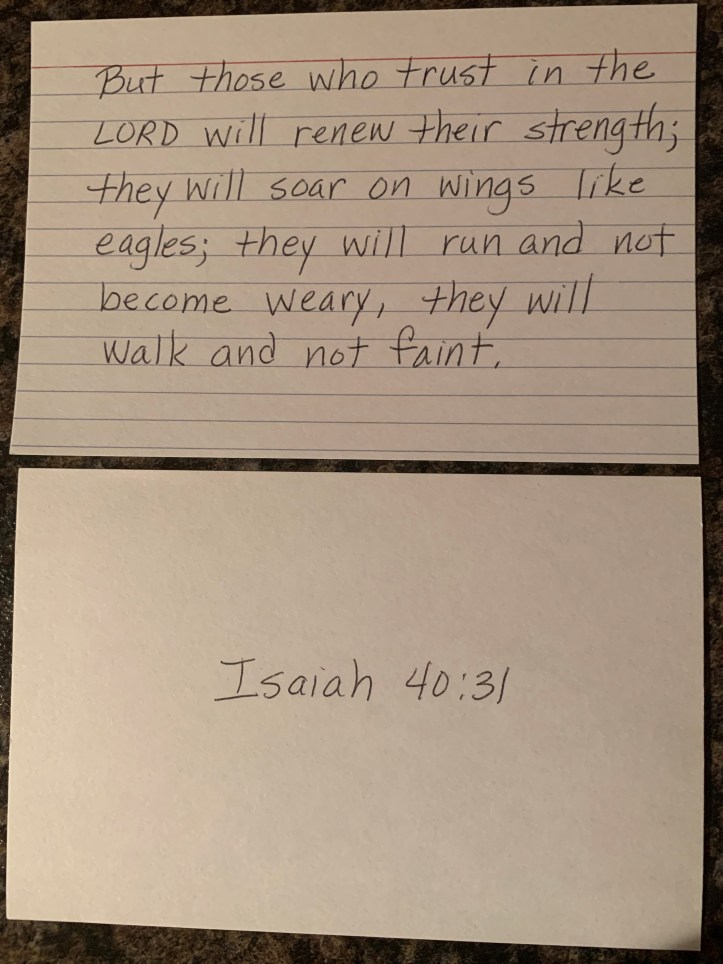 But those who trust in the
LORD will renew their strength;
they will soar on wings like
eagles; they will run and not
become weary, they will
walk and not faint.
Isaiah 40:31